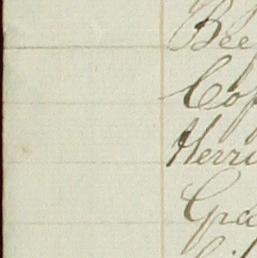 Bee
Cof
Herri
Gra